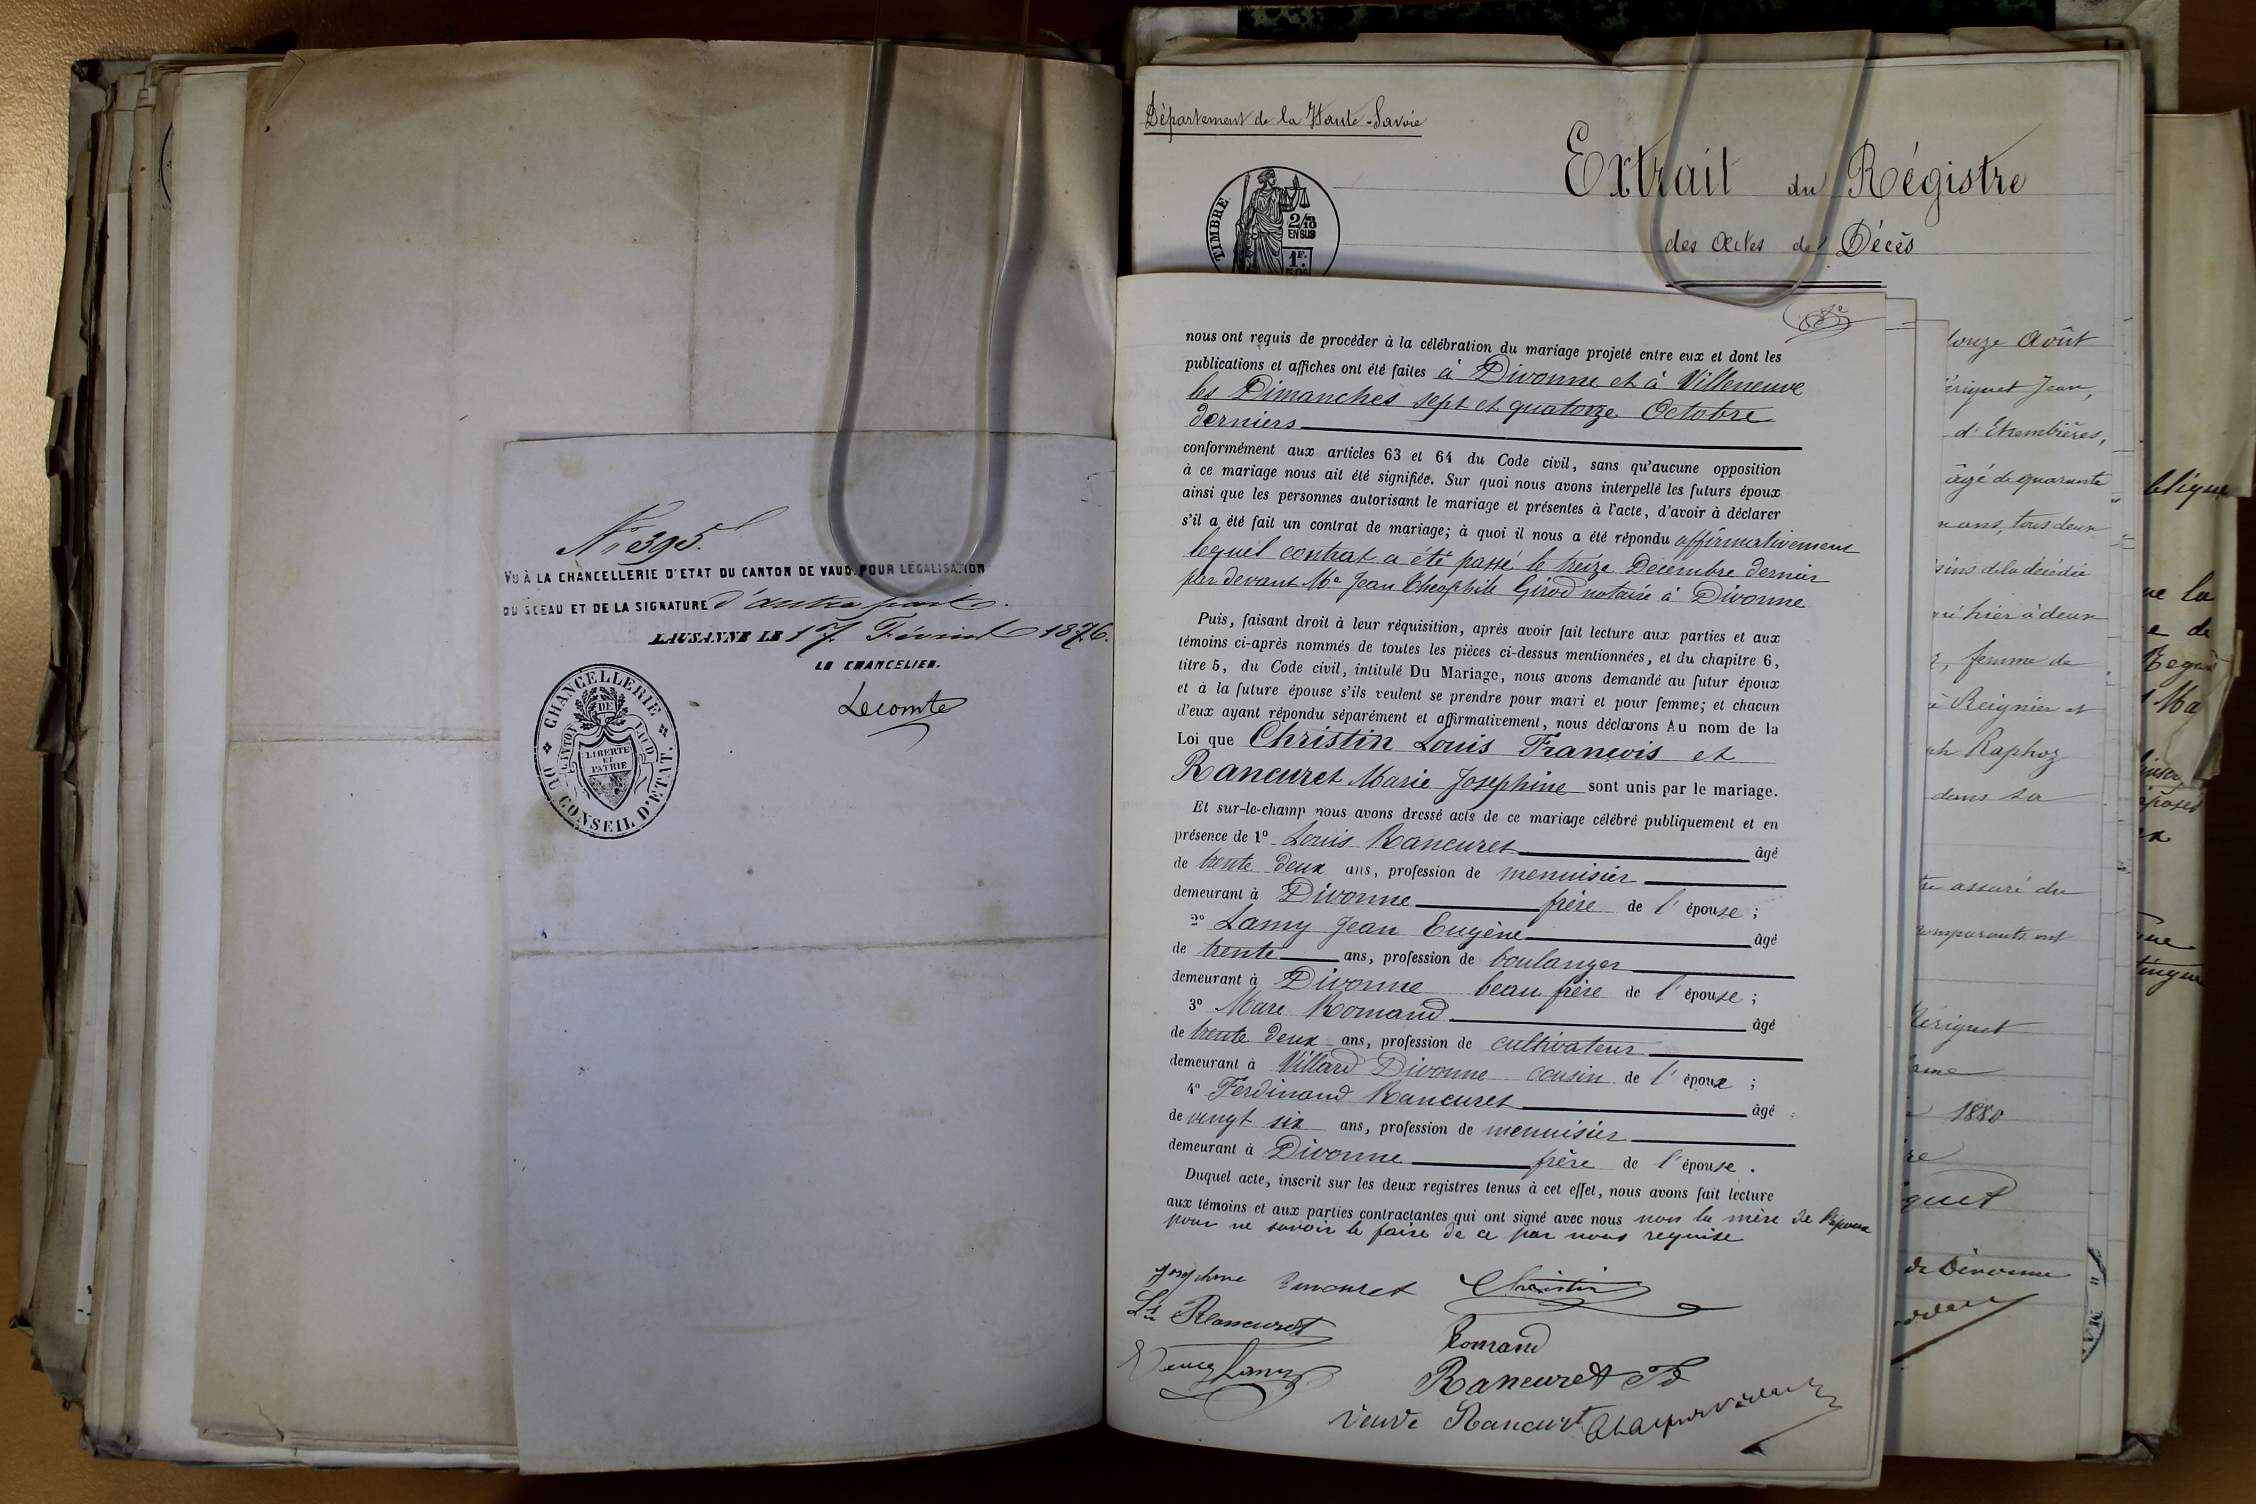 N° 395.
VU À LA CHANCELLERIE D'ETAT DU CANTON DE VAUD. POUR LÉGALISATION
DU SCEAU ET DE LA SIGNATURE d'autre part.
LAUSANNE LE 17 Février 1876.
LE CHANCELIER.
Lecomte
CHANCELLERIE DU CONSEIL D'ETAT.
DE
CANTON VAUD
LIBERTÉ
ET
PATRIE
Département de la Haute-Savoie
Extrait du Régistre
des Actes de Décès
TIMBRE
2/10
EN SUS
1F.
50c
nous ont requis de procéder à la célébration du mariage projeté entre eux et dont les
publications et affiches ont été faites à Divonne et à Villeneuve
les Dimanches sept et quatorze Octobre
derniers
conformément aux articles 63 et 64 du Code civil, sans qu'aucune opposition
à ce mariage nous ait été signifiée. Sur quoi nous avons interpellé les futurs époux
ainsi que les personnes autorisant le mariage et présentes à l'acte, d'avoir à déclarer
s'il a été fait un contrat de mariage; à quoi il nous a été répondu affirmativement
lequel contrat a été passé le treize Décembre dernier
par devant Me Jean Théophile Girod notaire à Divonne
Puis, faisant droit à leur réquisition, après avoir fait lecture aux parties et aux
témoins ci-après nommés de toutes les pièces ci-dessus mentionnées, et du chapitre 6,
titre 5, du Code civil, intitulé Du Mariage, nous avons demandé au futur époux
et à la future épouse s'ils veulent se prendre pour mari et pour femme; et chacun
d'eux ayant répondu séparément et affirmativement, nous déclarons Au nom de la
Loi que Christin Louis François et
Rancuret Marie Josephine sont unis par le mariage.
Et sur-le-champ nous avons dressé acte de ce mariage célébré publiquement et en
présence de 1° Louis Rancuret âgé
de trente deux ans, profession de menuisier
demeurant à Divonne frère de l'épouse;
2° Lamy Jean Eugène âgé
de trente ans, profession de boulanger
demeurant à Divonne beau frère de l'épouse;
3° Marc Romand âgé
de trente deux ans, profession de cultivateur
demeurant à Villard Divonne cousin de l'époux;
4° Ferdinand Rancuret âgé
de vingt six ans, profession de menuisier
demeurant à Divonne frère de l'épouse.
Duquel acte, inscrit sur les deux registres tenus à cet effet, nous avons fait lecture
aux témoins et aux parties contractantes qui ont signé avec nous non la mère de l'époux
pour ne savoir le faire de ce par nous requise
Josephine Rancuret Christin
Ls Rancuret
Romand
Lamy
Rancuret Fd
veuve Rancuret
Août
Jean,
d'Etrembières,
âgé de quarante
ans, tous deux
de la décédée
hier à deux
femme de
à Reignier et
Raphoz
dans sa
assuré du
comparants ont
1880
de Divonne